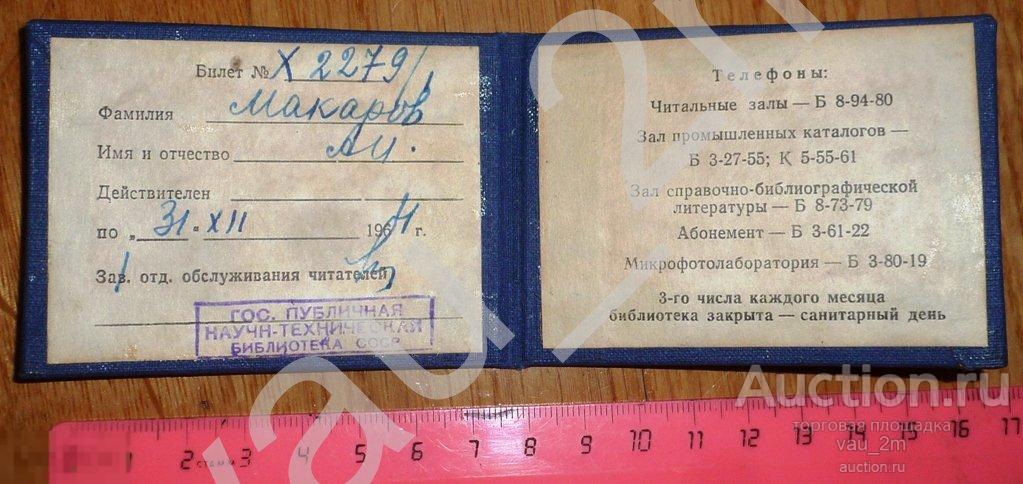 Билет № Х 2279
Фамилия Макаров
Имя и отчество А.И.
Действителен
по „31" XII 1964 г.
Зав. отд. обслуживания читателей
ГОС. ПУБЛИЧНАЯ
НАУЧН-ТЕХНИЧЕСКАЯ
БИБЛИОТЕКА СССР
Телефоны:
Читальные залы — Б 8-94-80
Зал промышленных каталогов —
Б 3-27-55; К 5-55-61
Зал справочно-библиографической
литературы — Б 8-73-79
Абонемент — Б 3-61-22
Микрофотолаборатория — Б 3-80-19
3-го числа каждого месяца
библиотека закрыта — санитарный день
Auction.ru
торговая площадка
vau_2m
auction.ru
1 2 3 4 5 6 7 8 9 10 11 12 13 14 15 16 17